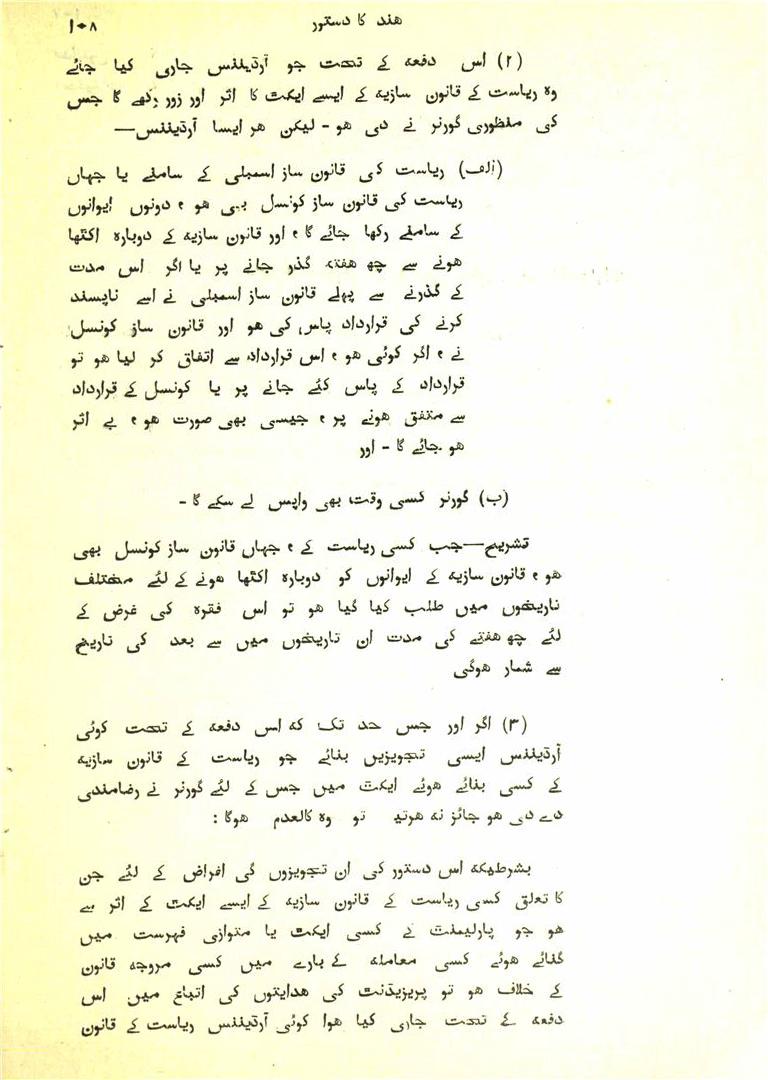 ھند کا دستور
۱۰۸
(۲) اس دفعہ کے تحت جو آرڈیننس جاری کیا جائے
وہ ریاست کے قانون سازیہ کے ایسے ایکٹ کا اثر اور زور رکھے گا جس
کی منظوری گورنر نے دی ھو - لیکن ھر ایسا آرڈیننس—
(الف) ریاست کی قانون ساز اسمبلی کے سامنے یا جہاں
ریاست کی قانون ساز کونسل بھی ھو ، دونوں ایوانوں
کے سامنے رکھا جائے گا ، اور قانون سازیہ کے دوبارہ اکٹھا
ھونے سے چھ ھفتے گذر جانے پر یا اگر اس مدت
کے گذرنے سے پہلے قانون ساز اسمبلی نے اسے ناپسند
کرنے کی قرارداد پاس کی ھو اور قانون ساز کونسل
نے ، اگر کوئی ھو ، اس قرارداد سے اتفاق کر لیا ھو تو
قرارداد کے پاس کئے جانے پر یا کونسل کے قرارداد
سے متفق ھونے پر ، جیسی بھی صورت ھو ، بے اثر
ھو جائے گا - اور
(ب) گورنر کسی وقت بھی واپس لے سکے گا -
تشریح—جب کسی ریاست کے ، جہاں قانون ساز کونسل بھی
ھو ، قانون سازیہ کے ایوانوں کو دوبارہ اکٹھا ھونے کے لئے مختلف
تاریخوں میں طلب کیا گیا ھو تو اس فقرہ کی غرض کے
لئے چھ ھفتے کی مدت ان تاریخوں میں سے بعد کی تاریخ
سے شمار ھوگی
(۳) اگر اور جس حد تک کہ اس دفعہ کے تحت کوئی
آرڈیننس ایسی تجویزیں بنائے جو ریاست کے قانون سازیہ
کے کسی بنائے ھوئے ایکٹ میں جس کے لئے گورنر نے رضامندی
دے دی ھو جائز نہ ھوتیں تو وہ کالعدم ھوگا :
بشرطیکہ اس دستور کی ان تجویزوں کی اغراض کے لئے جن
کا تعلق کسی ریاست کے قانون سازیہ کے ایسے ایکٹ کے اثر سے
ھو جو پارلیمنٹ کے کسی ایکٹ یا متوازی فہرست میں
گنائے ھوئے کسی معاملہ کے بارے میں کسی مروجہ قانون
کے خلاف ھو تو پریزیڈنٹ کی ھدایتوں کی اتباع میں اس
دفعہ کے تحت جاری کیا ھوا کوئی آرڈیننس ریاست کے قانون